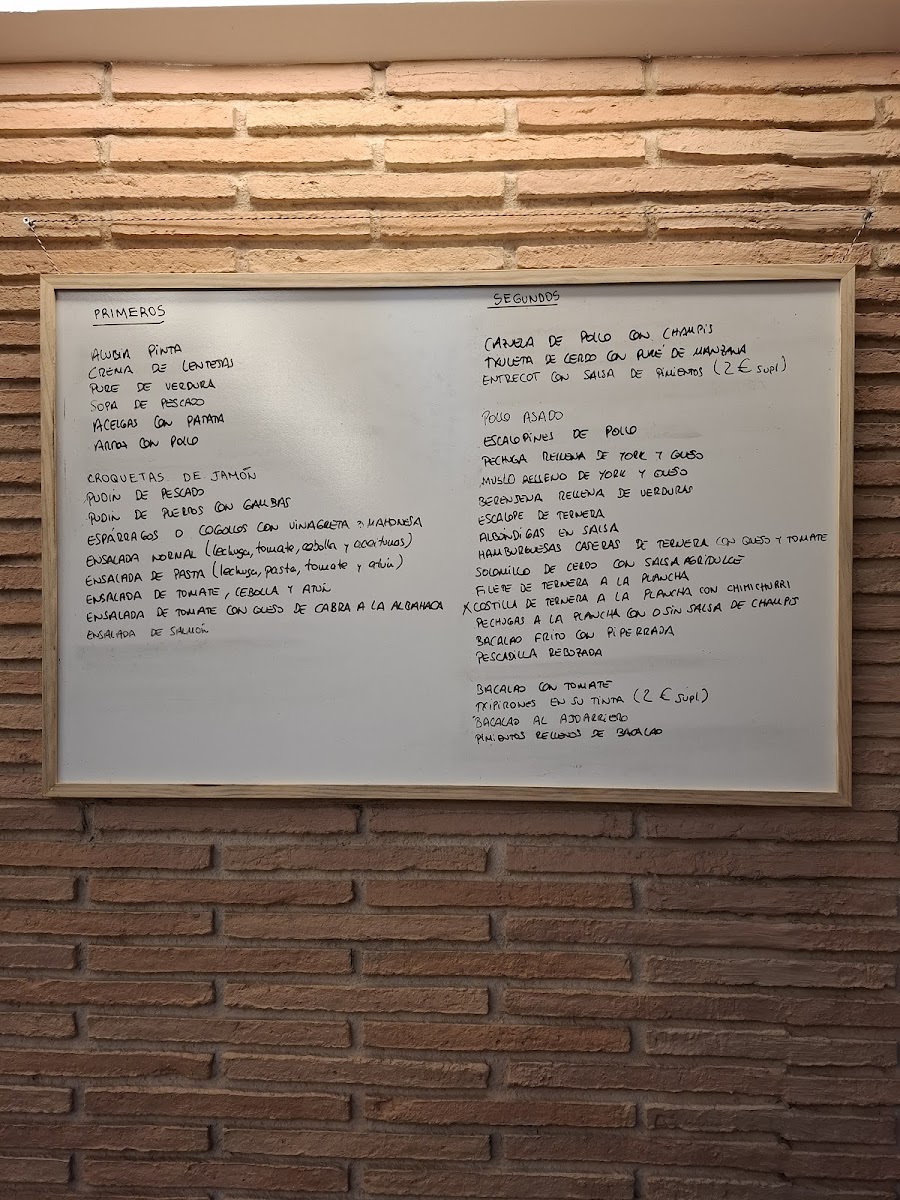 PRIMEROS
ALUBIA PINTA
CREMA DE LENTEJAS
PURE DE VERDURA
SOPA DE PESCADO
ACELGAS CON PATATA
ARROZ CON POLLO
CROQUETAS DE JAMÓN
PUDIN DE PESCADO
PUDIN DE PUERROS CON GAMBAS
ESPÁRRAGOS O COGOLLOS CON VINAGRETA O MAHONESA
ENSALADA NORMAL (lechuga, tomate, cebolla y aceitunas)
ENSALADA DE PASTA (lechuga, pasta, tomate y atún)
ENSALADA DE TOMATE, CEBOLLA Y ATÚN
ENSALADA DE TOMATE CON QUESO DE CABRA A LA ALBAHACA
ENSALADA DE SALMÓN
SEGUNDOS
CAZUELA DE POLLO CON CHAMPIS
TXULETA DE CERDO CON PURÉ DE MANZANA
ENTRECOT CON SALSA DE PIMIENTOS (2 € supl)
POLLO ASADO
ESCALOPINES DE POLLO
PECHUGA RELLENA DE YORK Y QUESO
MUSLO RELLENO DE YORK Y QUESO
BERENJENA RELLENA DE VERDURAS
ESCALOPE DE TERNERA
ALBÓNDIGAS EN SALSA
HAMBURGUESAS CASERAS DE TERNERA CON QUESO Y TOMATE
SOLOMILLO DE CERDO CON SALSA AGRIDULCE
FILETE DE TERNERA A LA PLANCHA
X COSTILLA DE TERNERA A LA PLANCHA CON CHIMICHURRI
PECHUGAS A LA PLANCHA CON O SIN SALSA DE CHAMPIS
BACALAO FRITO CON PIPERRADA
PESCADILLA REBOZADA
BACALAO CON TOMATE
TXIPIRONES EN SU TINTA (2 € supl)
BACALAO AL AJOARRIERO
PIMIENTOS RELLENOS DE BACALAO